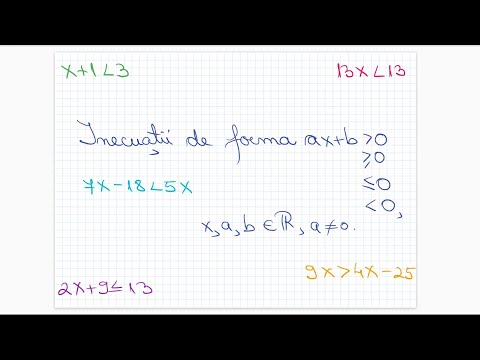 x+1<3
13x<13
Inecuații de forma ax+b >0
≥0
≤0
<0,
7x-18<5x
x,a,b∈ℝ, a≠0.
9x>4x-25
2x+9≤13